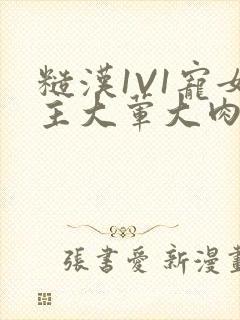 糙漢1V1寵女
主大葷大肉
張書愛 新漫畫